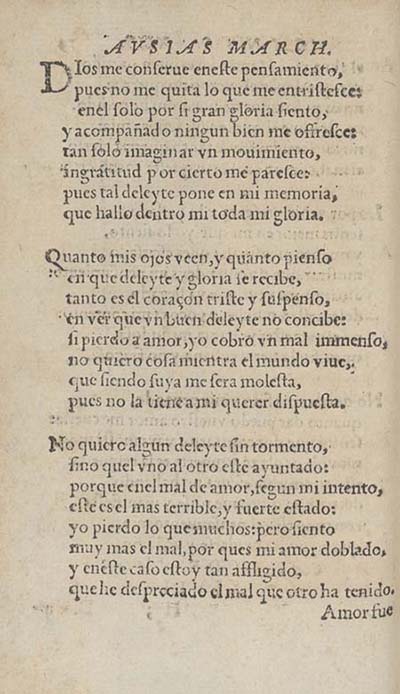 AVSIAS MARCH.
DIos me conserue eneste pensamiento,
pues no me quita lo que me entristesce:
enel solo por si gran gloria siento,
y acompañado ningun bien me offresce:
tan solo imaginar vn mouimiento,
ingratitud por cierto me paresce:
pues tal deleyte pone en mi memoria,
que hallo dentro mi toda mi gloria.
Quanto mis ojos veen, y quanto pienso
en que deleyte y gloria se recibe,
tanto es el coraçon triste y suspenso,
en ver que vn buen deleyte no concibe:
si pierdo a amor, yo cobro vn mal immenso,
no quiero cosa mientra el mundo viue,
que siendo suya me sera molesta,
pues no la tiene a mi querer dispuesta.
No quiero algun deleyte sin tormento,
sino quel vno al otro este ayuntado:
porque enel mal de amor, segun mi intento,
este es el mas terrible, y fuerte estado:
yo pierdo lo que muchos: pero siento
muy mas el mal, por ques mi amor doblado,
y eneste caso estoy tan affligido,
que he despreciado el mal que otro ha tenido.
Amor fue